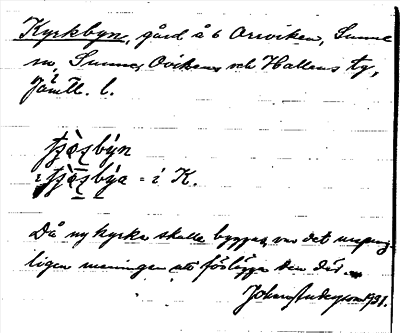 Kyrkbyn, gård å 6 Orrviken, Sunne
sn, Sunne, Ovikens och Hallens tg,
Jämtl. l.
Då ny kyrka skulle byggas, var det ursprung-
ligen meningen att förlägga den där.
Johan Anderson 1931.